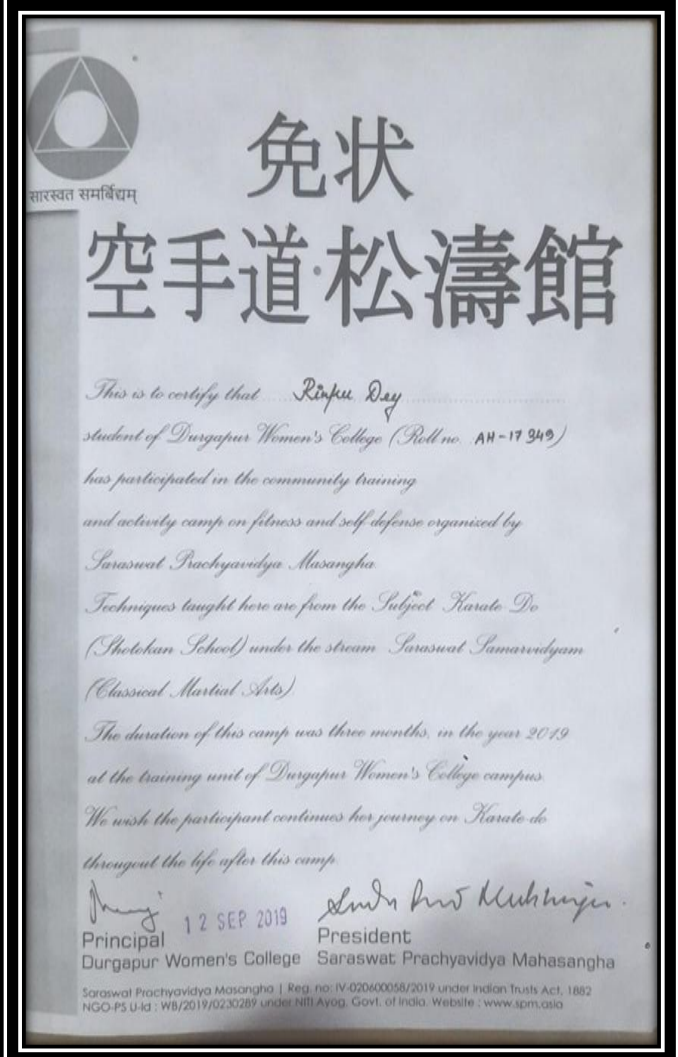 सारस्वत समर्बिद्यम्
免状
空手道·松濤館
This is to certify that Rinku Dey
student of Durgapur Women's College (Roll no. AH-17 349)
has participated in the community training
and activity camp on fitness and self defense organized by
Saraswat Prachyavidya Masangha.
Techniques taught here are from the Subject Karate Do
(Shotokan School) under the stream Saraswat Samarvidyam
(Classical Martial Arts).
The duration of this camp was three months, in the year 2019
at the training unit of Durgapur Women's College campus.
We wish the participant continues her journey on Karate-do
througout the life after this camp.
12 SEP 2019
Principal President
Durgapur Women's College Saraswat Prachyavidya Mahasangha
Saraswat Prachyavidya Masangha | Reg. no: IV-020600058/2019 under Indian Trusts Act, 1882
NGO-PS U-Id : WB/2019/0230289 under NITI Ayog, Govt. of India. Website : www.spm.asia